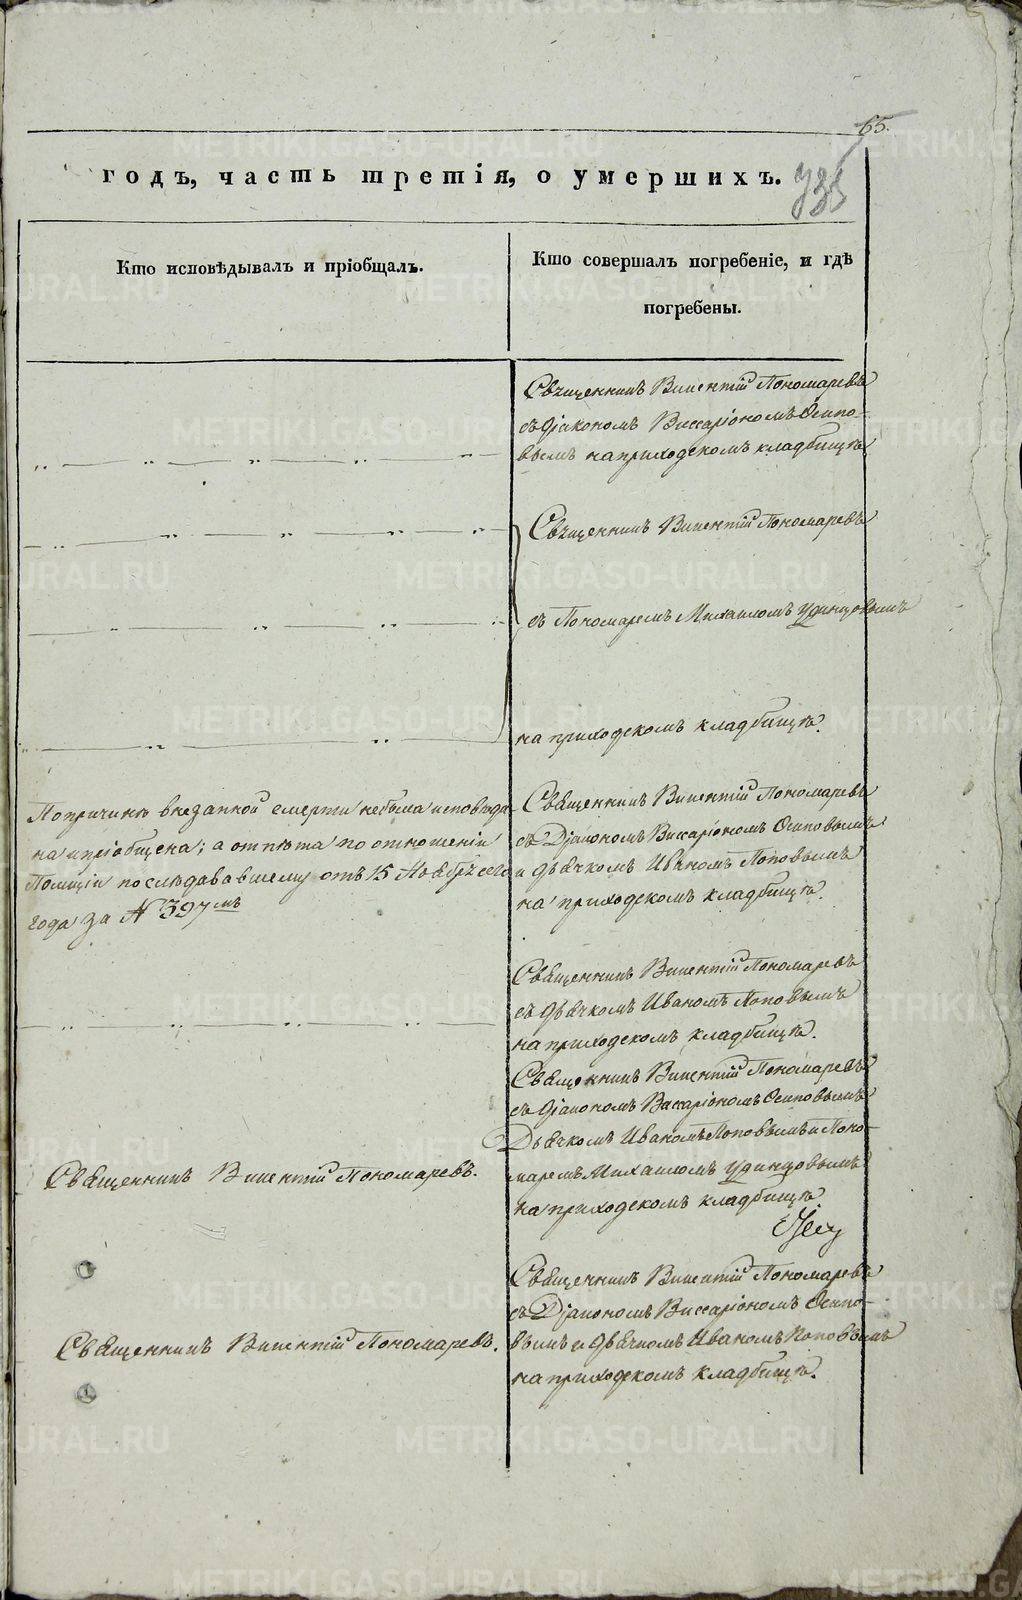 65.
годъ, часть третія, о умершихъ.
Кто исповѣдывалъ и пріобщалъ.
Кто совершалъ погребеніе, и гдѣ
погребены.
Священникъ Викентій Пономаревъ
съ діакономъ Виссаріономъ Осипо-
вымъ на приходскомъ кладбищѣ
Священникъ Викентій Пономаревъ
съ Пономаремъ Михаиломъ Удинцовымъ
на приходскомъ кладбищѣ.
По причинѣ внезапной смерти небыла исповѣда-
на и пріобщена; а отпѣта по отношенію
Полиціи последовавшему отъ 15 Ноября сего
года за № 397мъ
Священникъ Викентій Пономаревъ
съ Діакономъ Виссаріономъ Осиповымъ
и дьячкомъ Иваномъ Поповымъ
на приходскомъ кладбищѣ.
Священникъ Викентій Пономаревъ
съ дьячкомъ Иваномъ Поповымъ
на приходскомъ кладбищѣ.
Священникъ Викентій Пономаревъ.
Священникъ Викентій Пономаревъ
съ діакономъ Виссаріономъ Осиповымъ
Дьячкомъ Иваномъ Поповымъ и Поно-
маремъ Михаиломъ Удинцовымъ
на приходскомъ кладбищѣ
Священникъ Викентій Пономаревъ.
Священникъ Викентій Пономаревъ
съ Діакономъ Виссаріономъ Осипо-
вымъ и дьячкомъ Иваномъ Поповымъ
на приходскомъ кладбищѣ.
METRIKI.GASO-URAL.RU